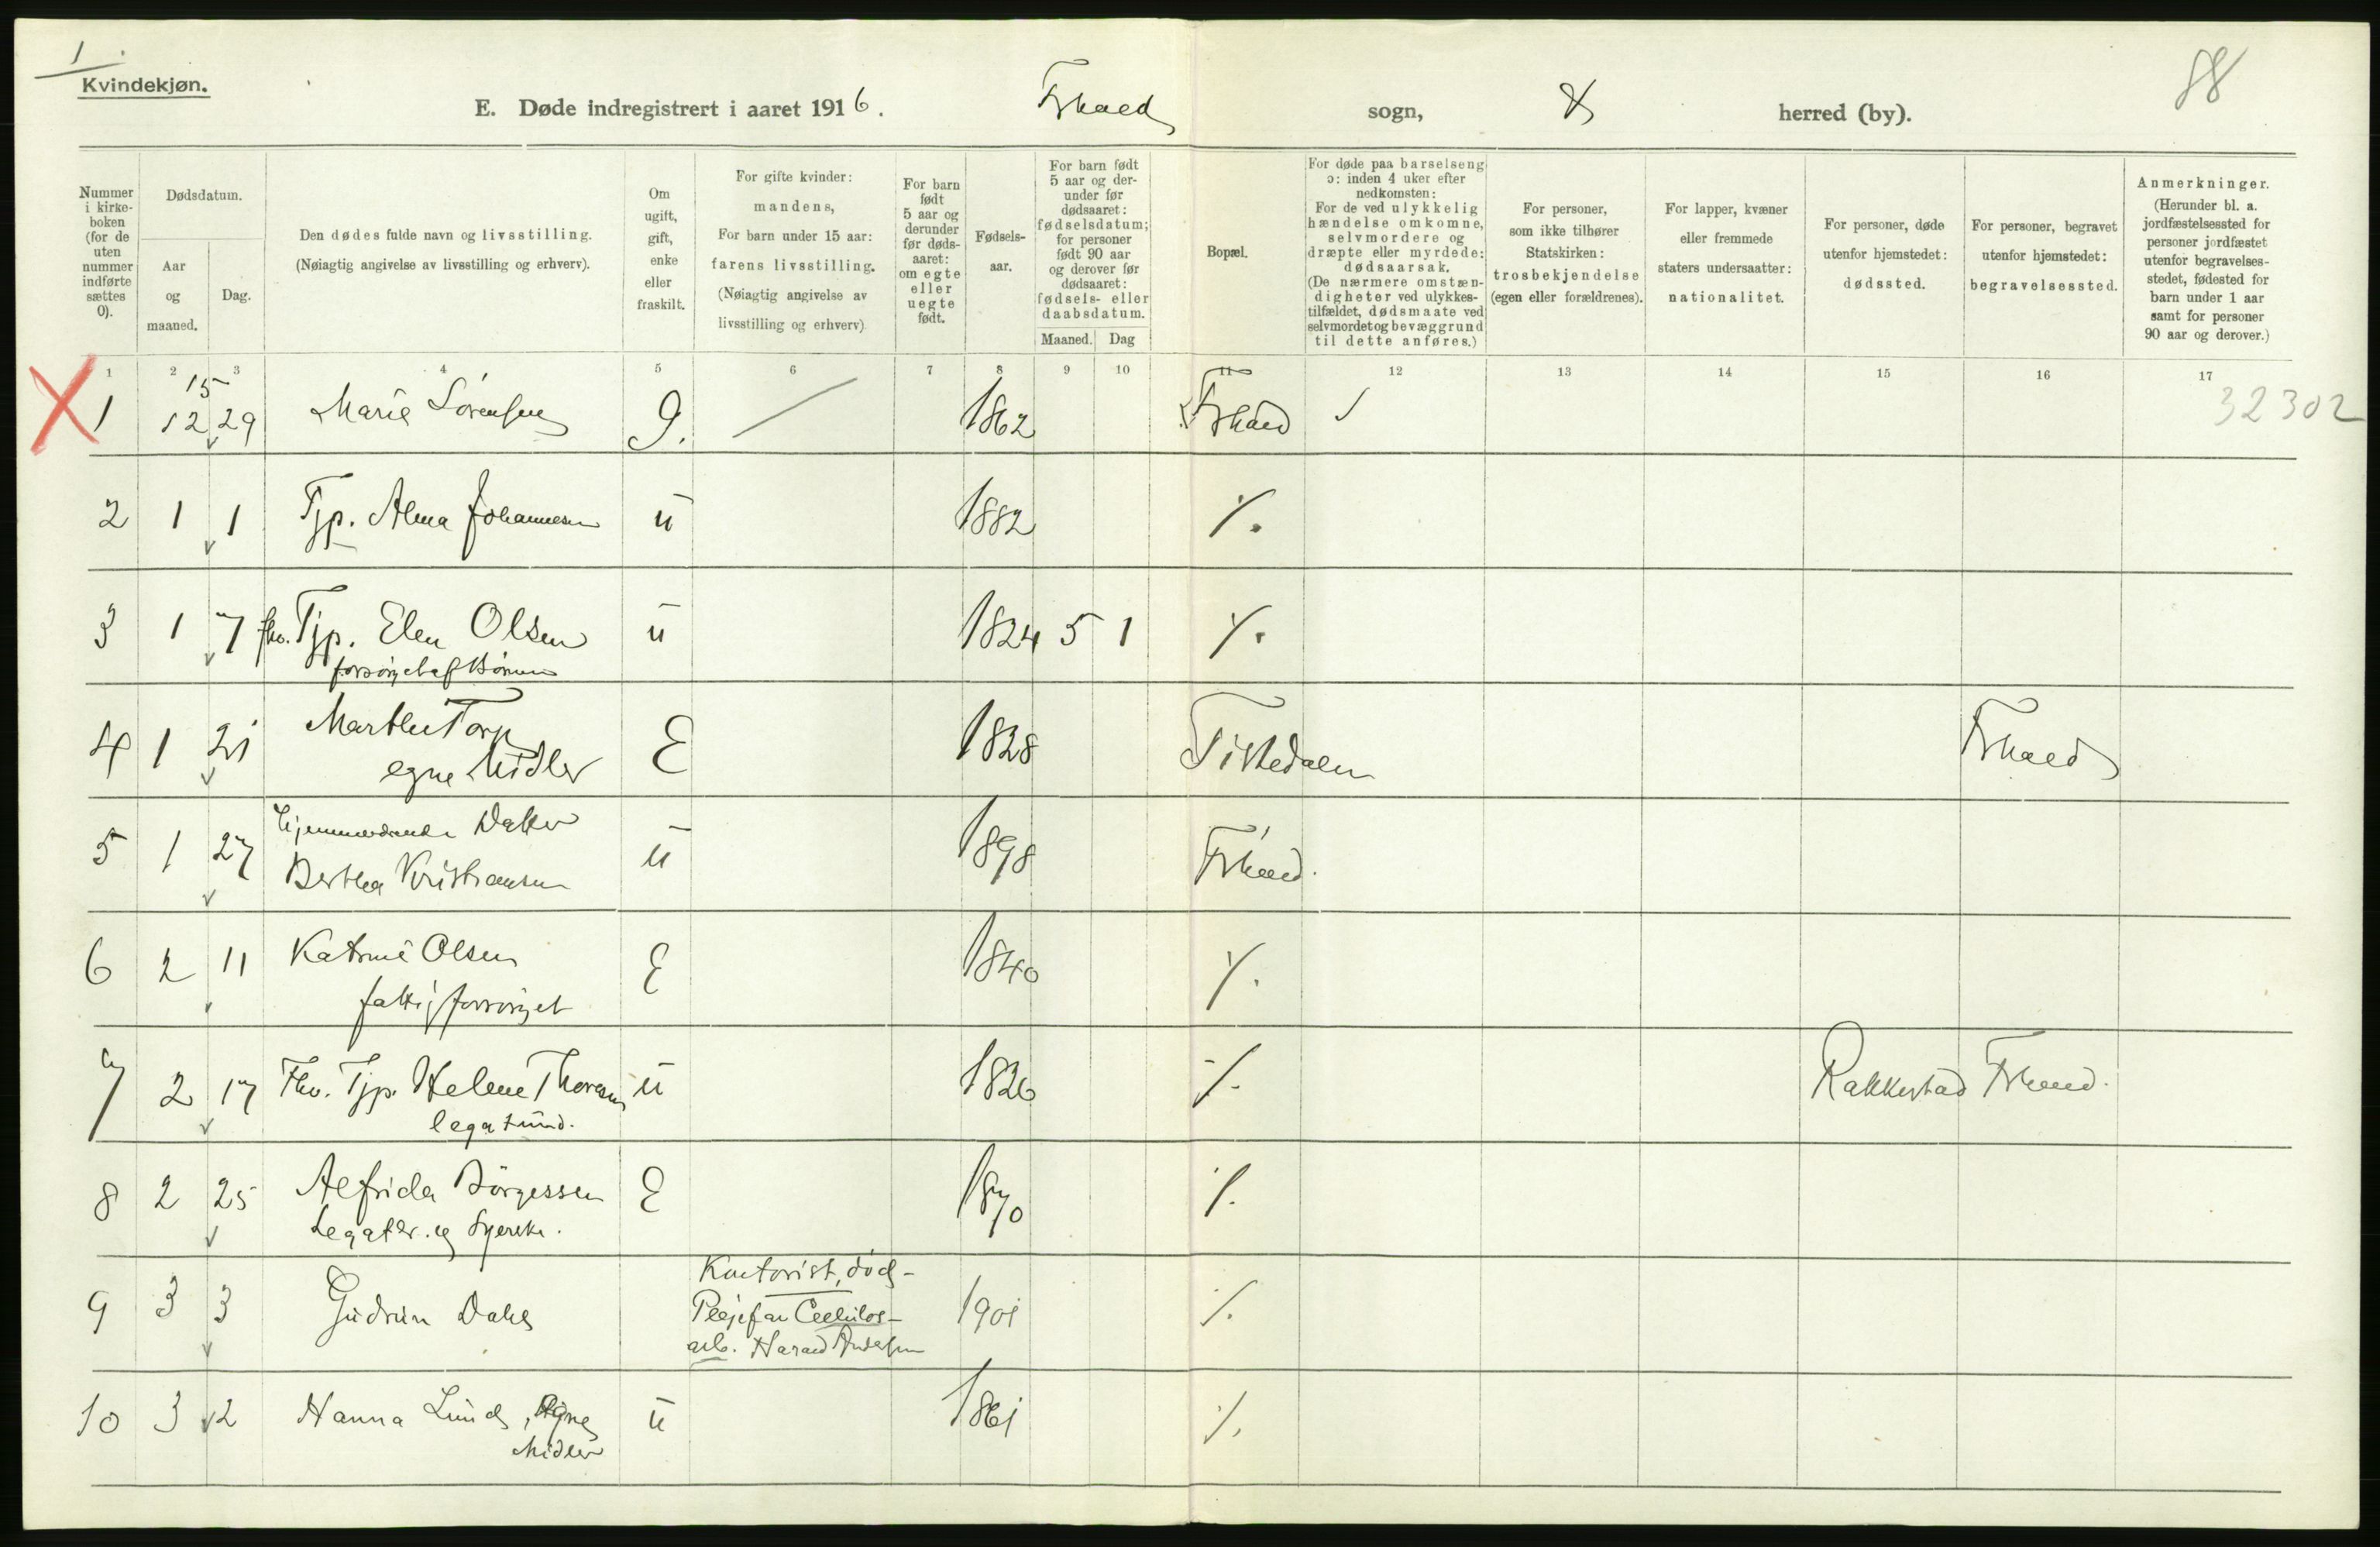 1
Kvindekjøn.
E. Døde indregistrert i aaret 1916. Frhald sogn, herred (by).
88
Nummer i kirke-boken (for de uten nummer indførte sættes 0).
Dødsdatum.
Aar og maaned.
Dag.
Den dødes fulde navn og livsstilling.
(Nøiagtig angivelse av livsstilling og erhverv).
Om ugift, gift, enke eller fraskilt.
For gifte kvinder:
mandens,
For barn under 15 aar:
farens livsstilling.
(Nøiagtig angivelse av
livsstilling og erhverv)
For barn født 5 aar og derunder før døds-aaret: om egte eller uegte født.
Fødsels-aar.
For barn født 5 aar og der-under før dødsaaret: fødselsdatum; for personer født 90 aar og derover før dødsaaret: fødsels- eller daabsdatum.
Maaned. Dag
Bopæl.
For døde paa barselseng ɔ: inden 4 uker efter nedkomsten:
For de ved ulykkelig hændelse omkomne, selvmordere og dræpte eller myrdede: dødsaarsak.
(De nærmere omstæn-digheter ved ulykkes-tilfældet, dødsmaate ved selvmordet og bevæggrund til dette anføres.)
For personer, som ikke tilhører Statskirken: trosbekjendelse (egen eller forældrenes).
For lapper, kvæner eller fremmede staters undersaatter: nationalitet.
For personer, døde utenfor hjemstedet: dødssted.
For personer, begravet utenfor hjemstedet: begravelsessted.
Anmerkninger.
(Herunder bl. a. jordfæstelsessted for personer jordfæstet utenfor begravelses-stedet, fødested for barn under 1 aar samt for personer 90 aar og derover.)
1 2 3 4 5 6 7 8 9 10 11 12 13 14 15 16 17
15
1 12 29 Marie Sörensen g. 1862 Frhald 32302
2 1 1 Tjp. Alma Johannesen u 1882 ./.
3 1 7 fhv. Tjp. Elen Olsen u 1824 5 1 ./.
forsörget af Börnene
4 1 21 Marthe Torp E 1828 Tistedalen Frhald
egne Midler
5 1 27 hjemmeværende Datter u 1898 Frhald.
Bertha Kristiansen
6 2 11 Katrine Olsen E 1840 ./.
fattigforsörget
7 2 17 Fhv. Tjp. Helene Thoresen u 1826 ./. Rakkestad Frhald.
legatund.
8 2 25 Alfrida Börgessen E 1870 ./.
Legater. og Syerske.
9 3 3 Gudrun Dahl Kontorist, död - 1901 ./.
Plejefar Cellulos-
arb. Harald Andersen
10 3 2 Hanna Lund, Egne u 1861 ./.
Midler